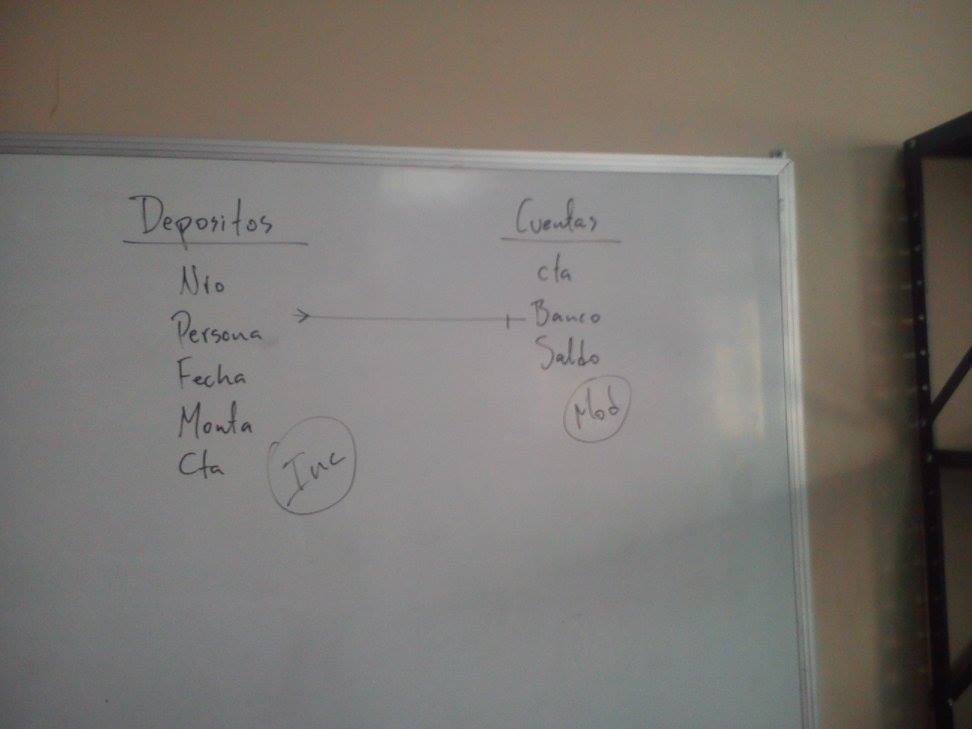 Depositos
Nro
Persona
Fecha
Monta
Cta
Inc
Cuentas
cta
Banco
Saldo
Mod